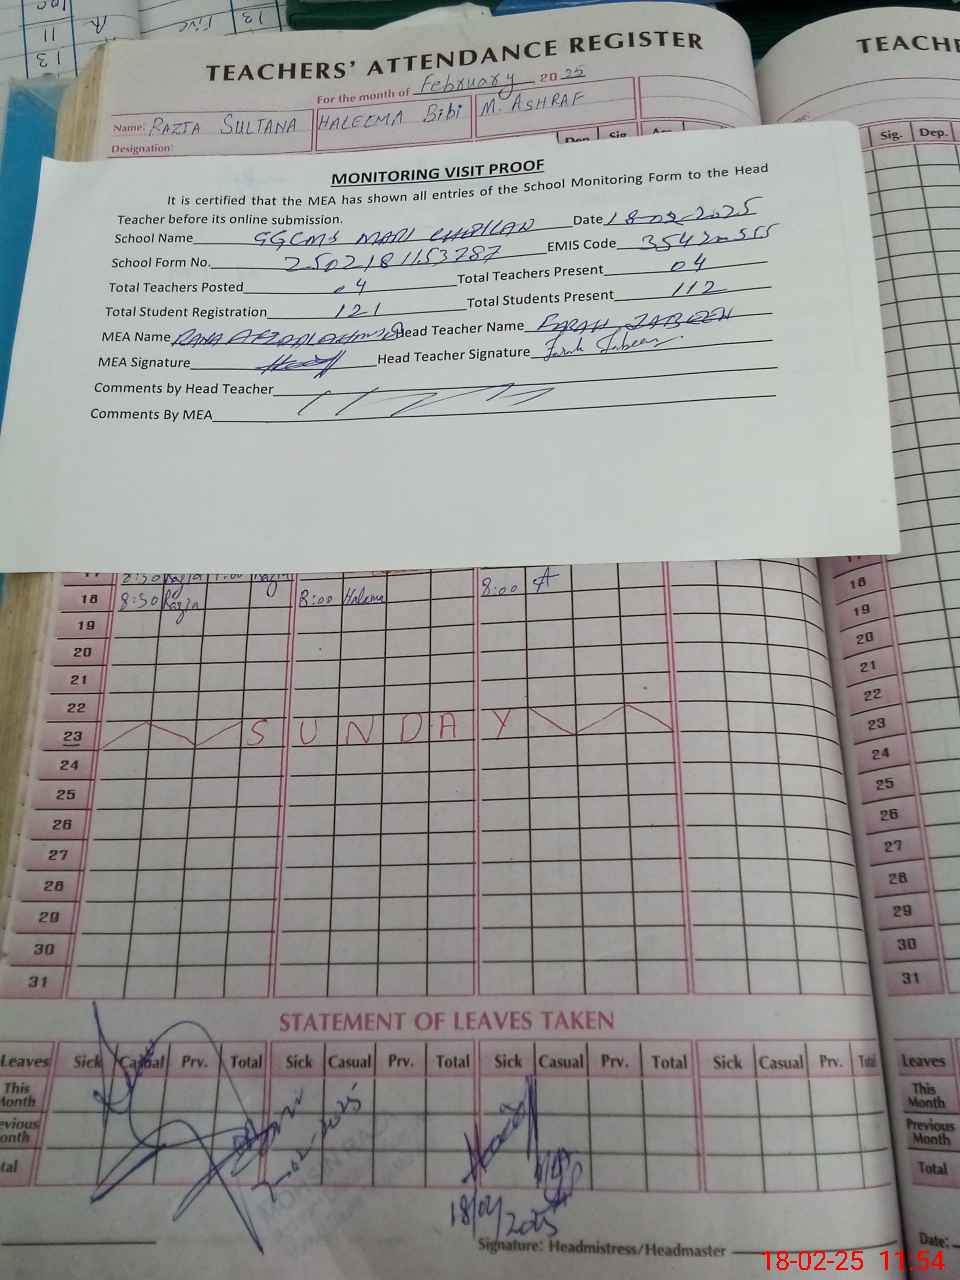 TEACHERS' ATTENDANCE REGISTER
For the month of February 2025
Name: RAZIA SULTANA HALEEMA Bibi M. ASHRAF
Designation:
TEACH
Sig. Dep.
MONITORING VISIT PROOF
It is certified that the MEA has shown all entries of the School Monitoring Form to the Head
Teacher before its online submission.
School Name GGCMS MARI Date 18-02-2025
School Form No. 2502181153787 EMIS Code
Total Teachers Posted 04 Total Teachers Present 04
Total Student Registration 121 Total Students Present 112
MEA Name RANA Head Teacher Name FARAH JABEEN
MEA Signature Head Teacher Signature Farah Jabeen
Comments by Head Teacher
Comments By MEA
18 8:30 Razia 8:00 Haleema 8:00 A 18
19 19
20 20
21 21
22 22
23 SUNDAY 23
24 24
25 25
26 26
27 27
28 28
29 29
30 30
31 31
STATEMENT OF LEAVES TAKEN
Leaves Sick Casual Prv. Total Sick Casual Prv. Total Sick Casual Prv. Total Sick Casual Prv. Total Leaves
This Month This Month
Previous Month
Total
18/02/2025
Signature: Headmistress/Headmaster
Date:
18-02-25 11:54